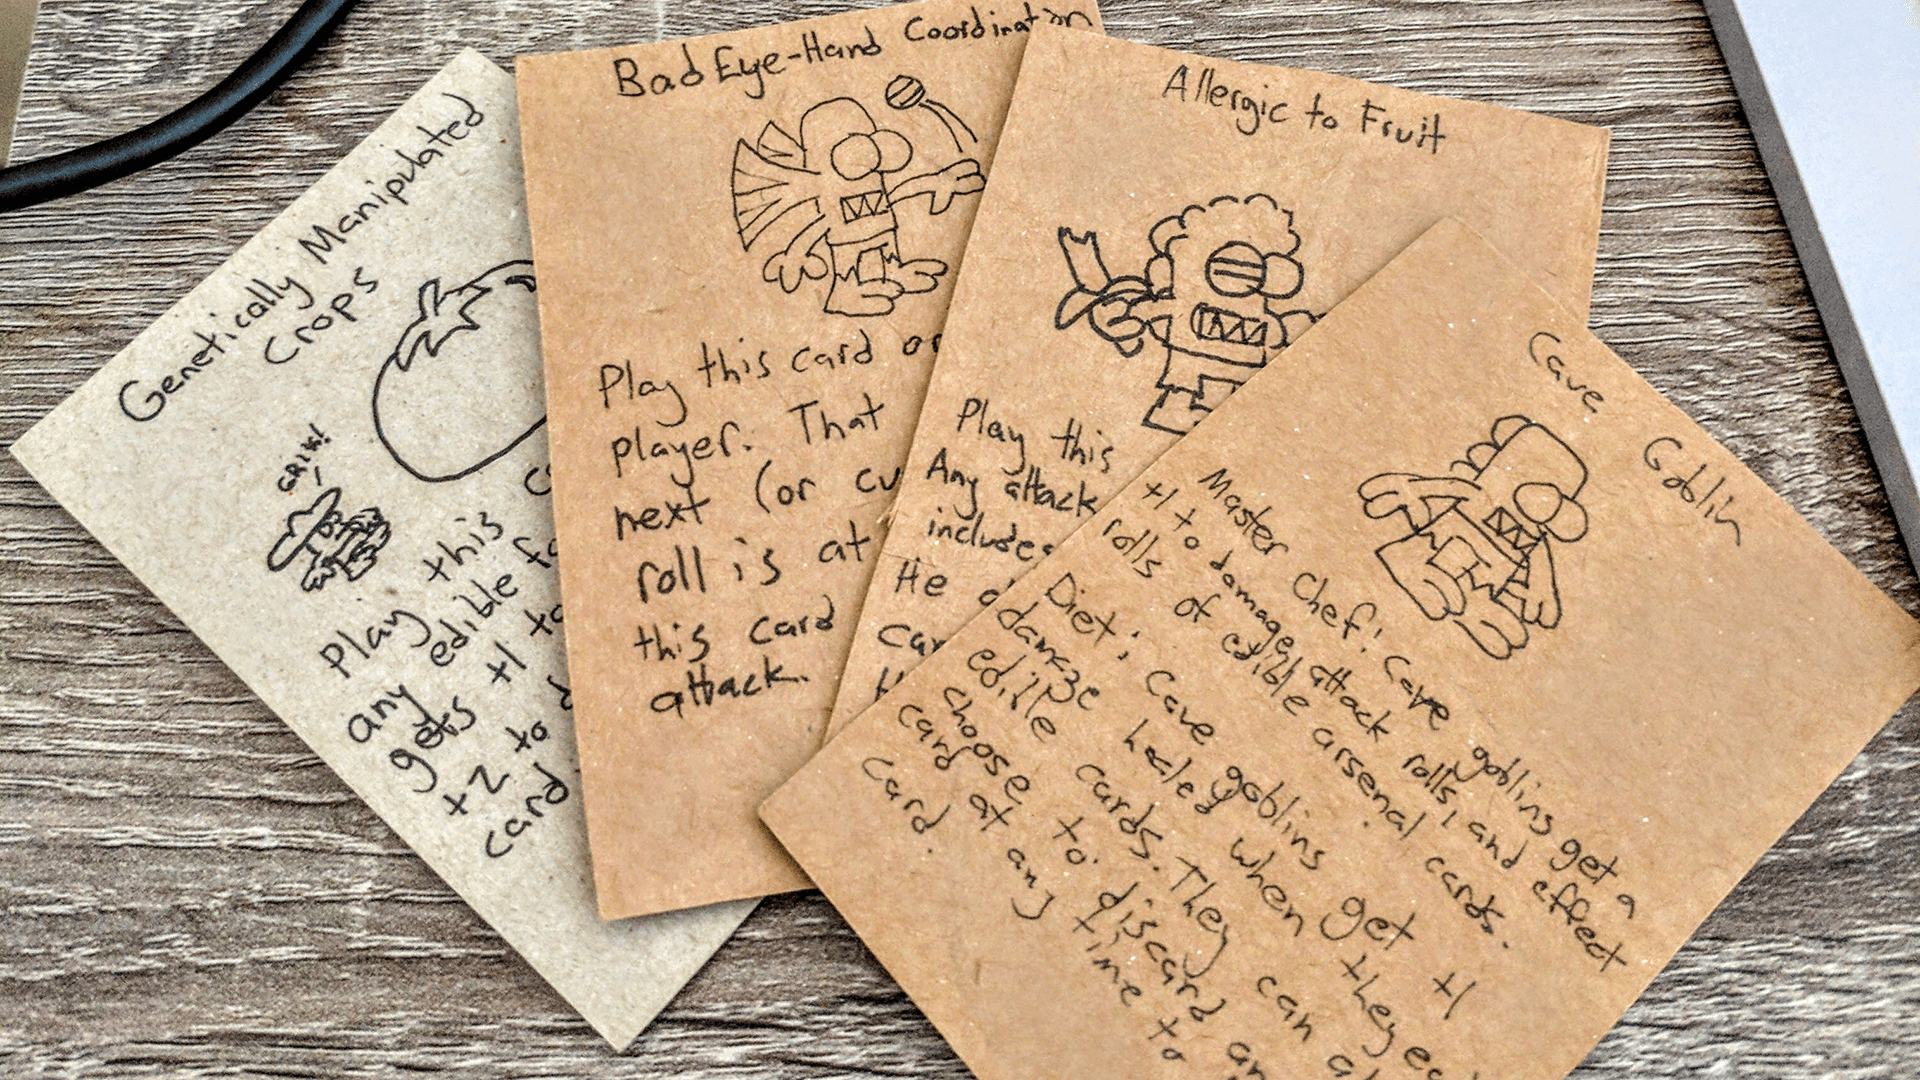 Genetically Manipulated
Crops
GRIK!
Play this
any edible
gets +1 to
+2 to
card
Bad Eye-Hand Coordination
Play this card
player. That
next (or
roll is at
this card
attack.
Allergic to Fruit
Play this
Any attack
includes
He
Cave Goblin
Master Chef: Cave goblins get a
+1 to damage, attack rolls, and effect
rolls of edible arsenal cards.
Diet: Cave goblins get +1
damage healed when they
edible cards. They can
choose to discard
card at any time to
card.